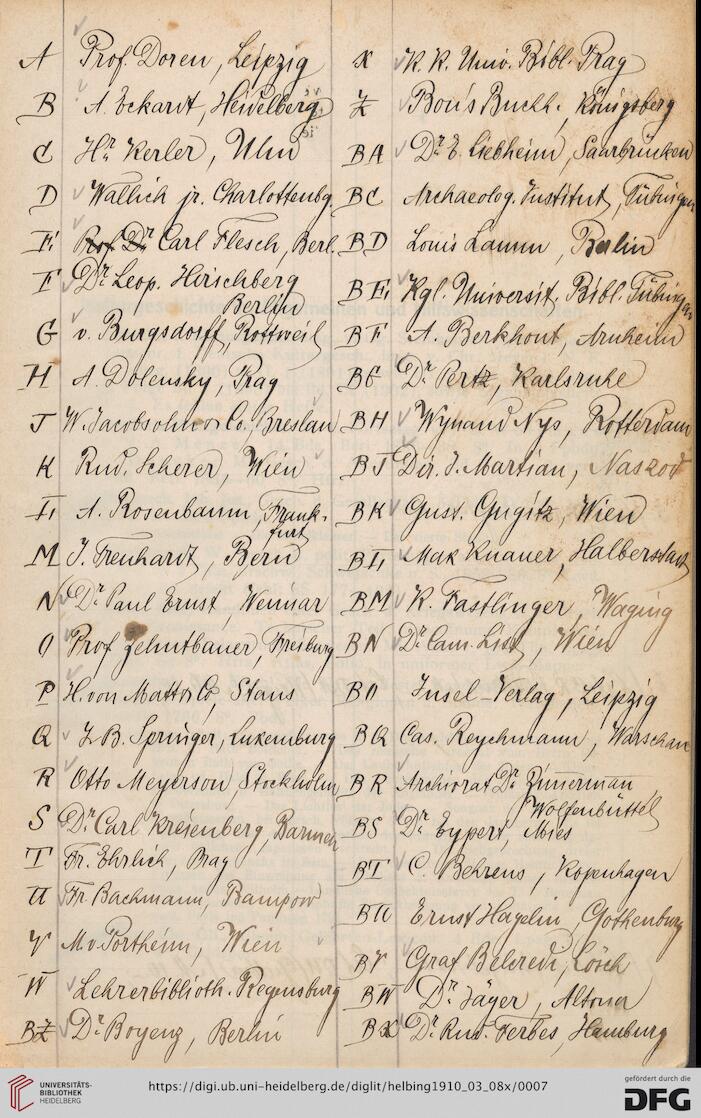 A Prof. Doren, Leipzig
B A. Eckardt, Heidelberg
C Hr. Kerler, Ulm
D Wallich jr. Charlottenbg.
E Prof. Dr. Carl Flesch, Berl.
F Dr. Leop. Hirschberg
Berlin
G v. Burgsdorff, Rottweil
H A. Dolensky, Prag
J W. Jacobsohn & Co., Breslau
K Rud. Scherer, Wien
L A. Rosenbaum, Frank-
furt
M J. Trenhardt, Bern
N Dr. Paul Ernst, Weimar
O Prof. Zehntbauer, Freiburg
P H. von Matt & Co, Stans
Q J. B. Springer, Luxemburg
R Otto Meyerson, Stockholm
S Dr. Carl Kreisenberg, Barmen
T Fr. Ehrlich, Prag
U Fr. Bachmann, Bampow
V M. v. Portheim, Wien
W Lehrerbiblioth. Regensburg
BZ Dr. Boyenz, Berlin
X K. K. Univ. Bibl. Prag
Z Bons Buchh., Königsberg
BA Dr. E. Liebheim, Saarbrücken
BC Archaeolog. Institut, Tübingen
BD Louis Lamm, Berlin
BE Kgl. Universit. Bibl. Tübingen
BF A. Berkhout, Arnheim
BG Dr. Pertz, Karlsruhe
BH Wynand Nys, Rotterdam
BJ Dir. J. Martian, Naszod
BK Gust. Gugitz, Wien
BL Max Knauer, Halberstadt
BM K. Fastlinger, Waging
BN Dr. Cam. List, Wien
BO Insel-Verlag, Leipzig
BQ Cas. Reychmann, Warschau
BR Archivrat Dr. Zimmerman
Wolfenbüttel
BS Dr. Eypert, Mies
BT C. Behrens, Kopenhagen
BU Ernst Hagelin, Gothenburg
BV Graf Belcredi, Lösch
BW Dr. Jäger, Altona
BX Dr. Rud. Ferbes, Hamburg
UNIVERSITÄTS-
BIBLIOTHEK
HEIDELBERG
https://digi.ub.uni-heidelberg.de/diglit/helbing1910_03_08x/0007
gefördert durch die
DFG